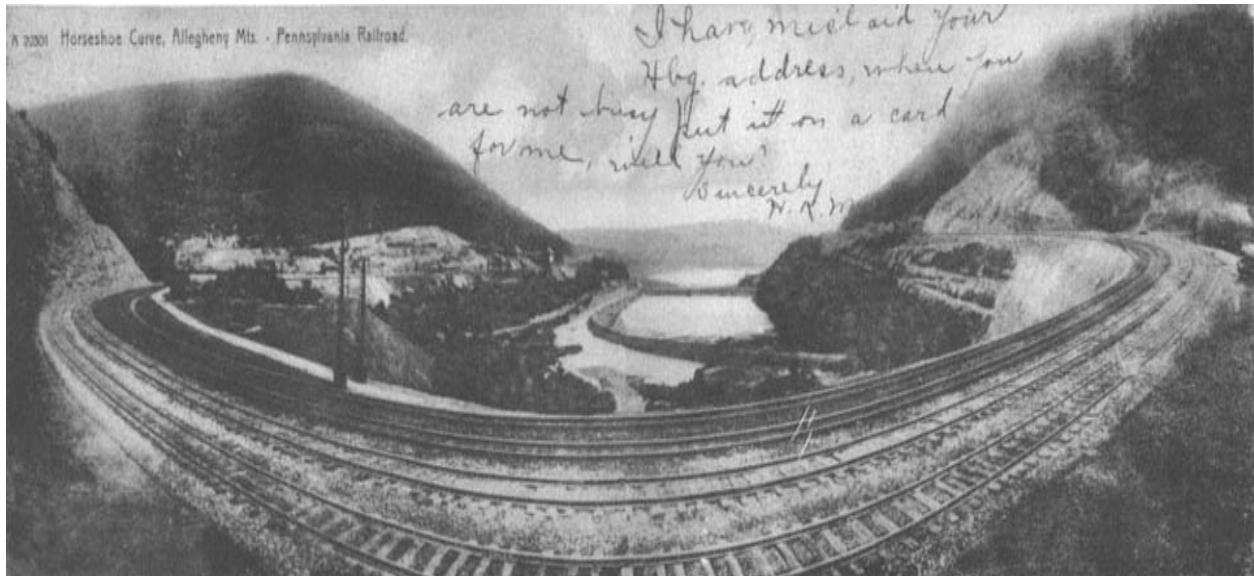 A 20301 Horseshoe Curve, Allegheny Mts. - Pennsylvania Railroad.
I have mislaid your
Hbg. address, when you
are not busy put it on a card
for me, will you?
Sincerely
H. K. M